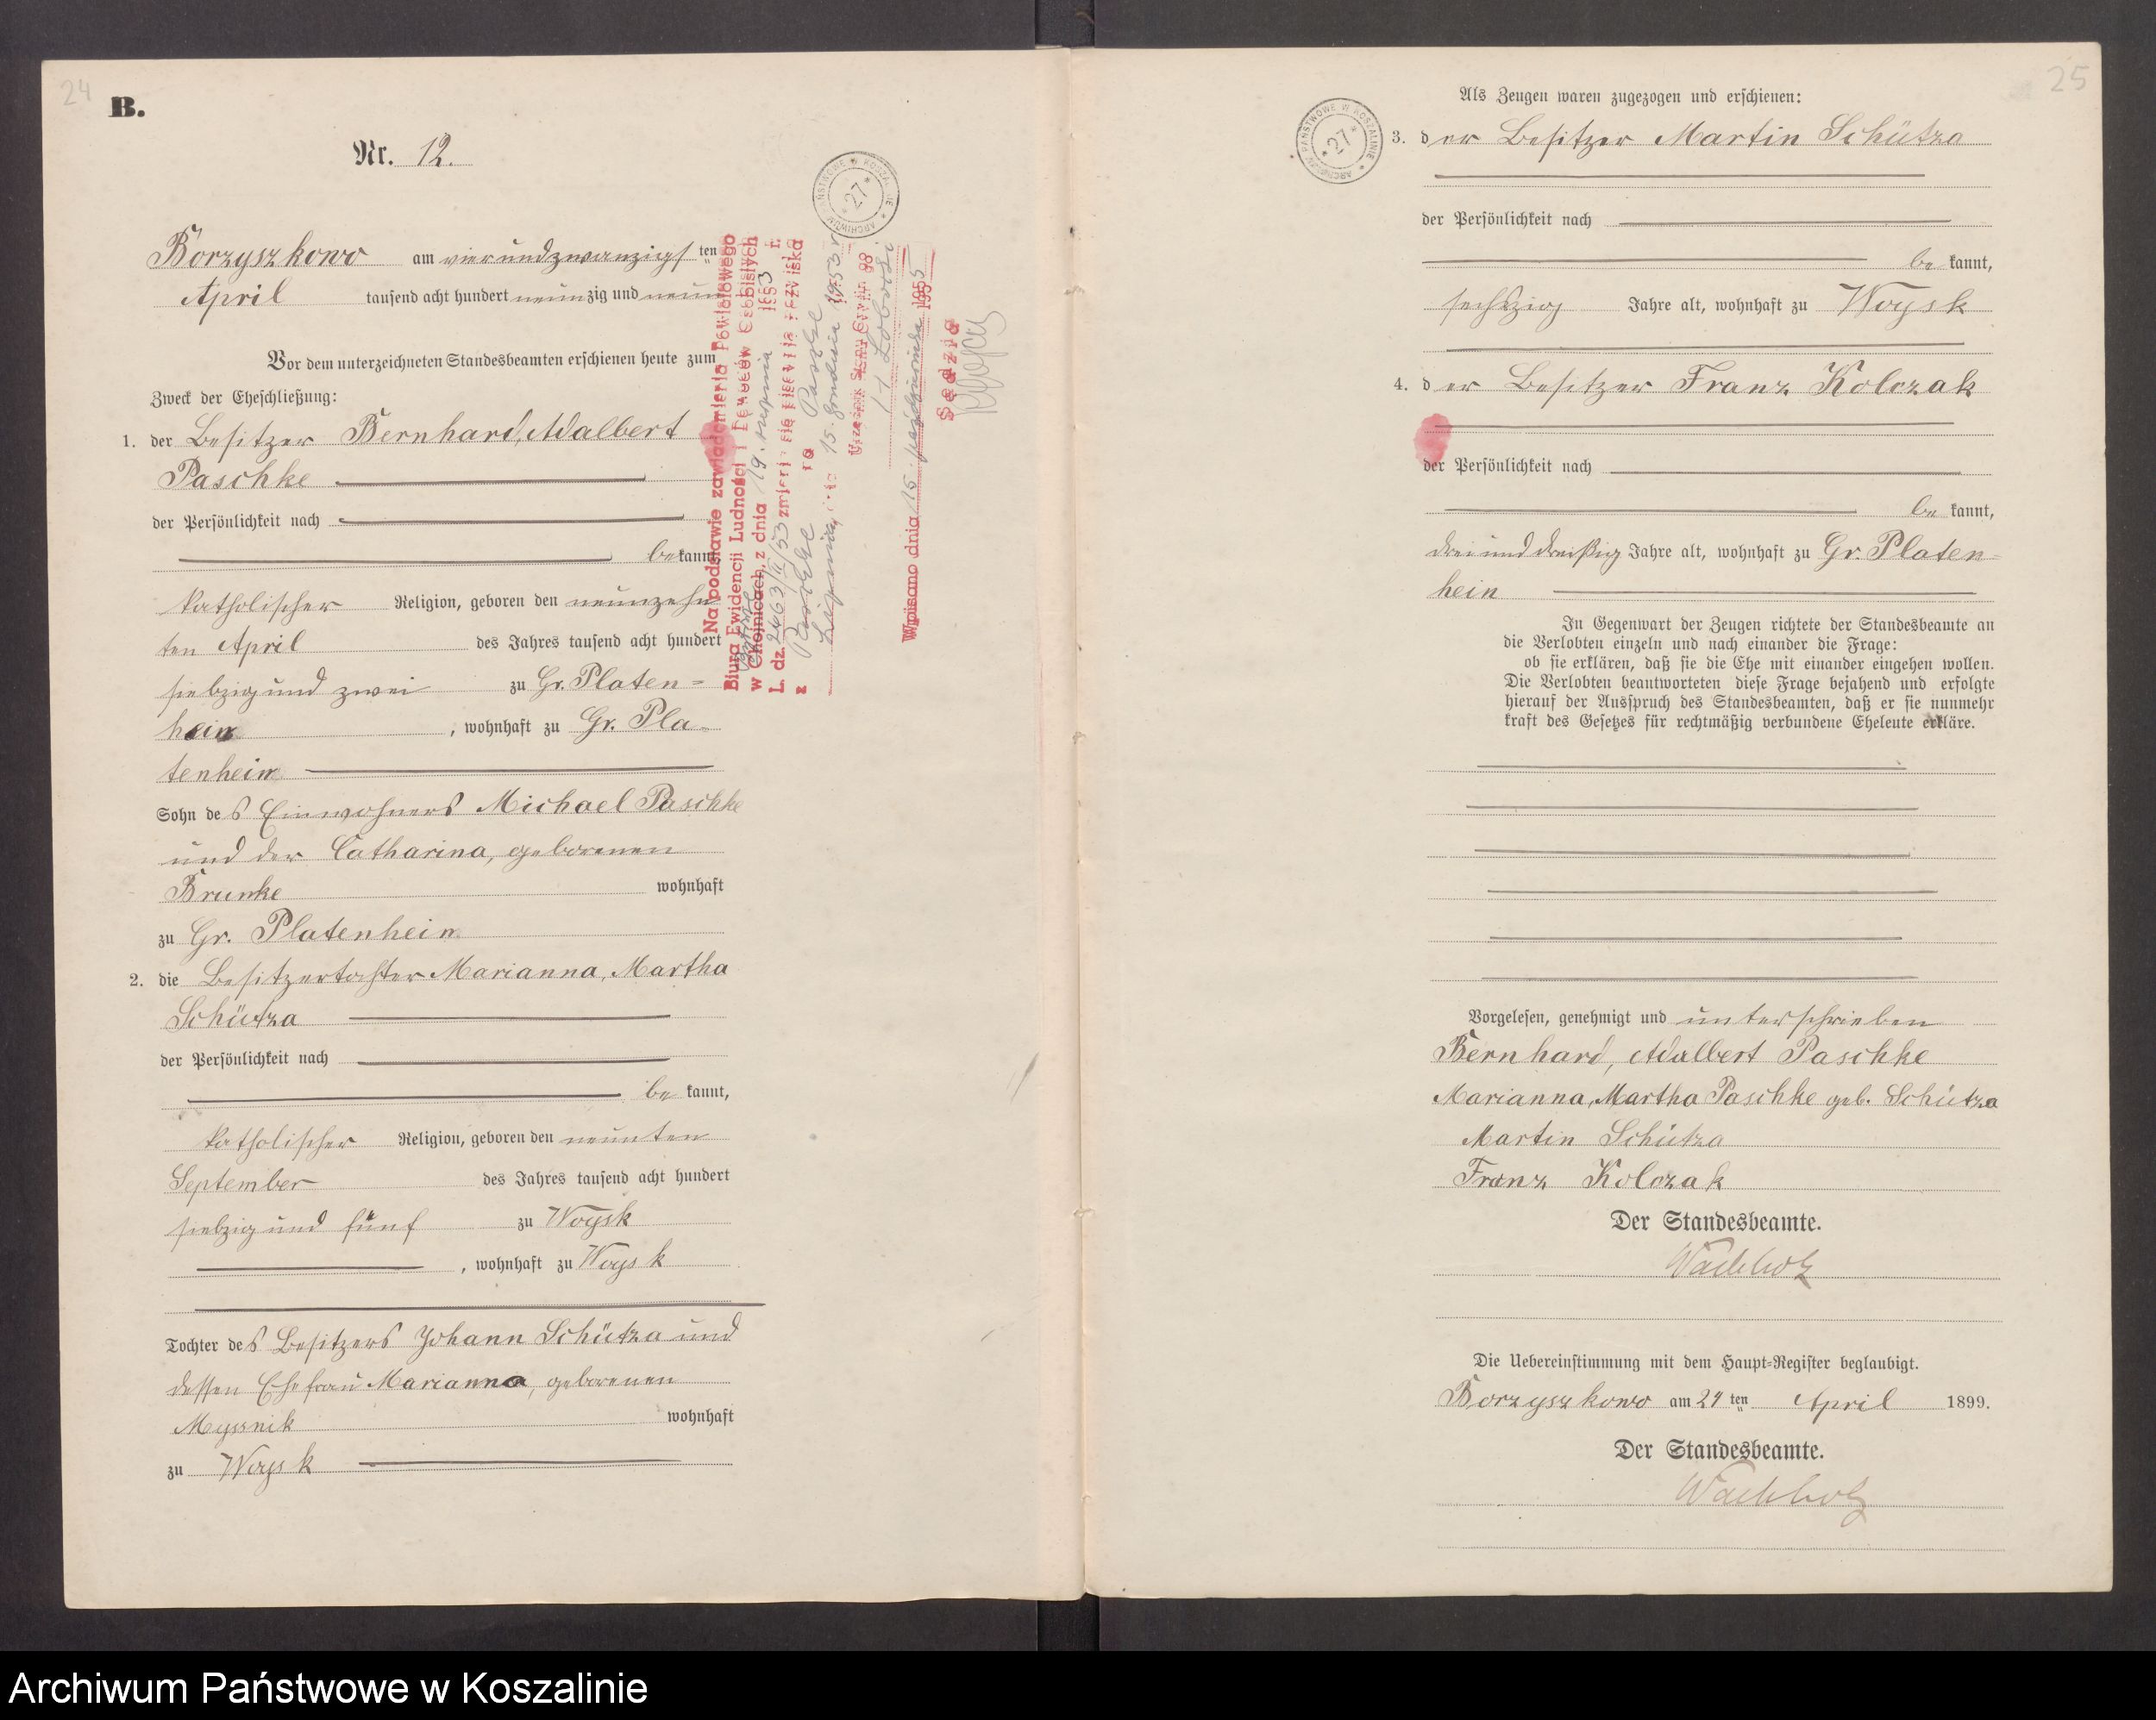 24
B.
Nr. 12.
Borzyszkowo am vierundzwanzigsten
April tausend acht hundert neunzig und neun
Vor dem unterzeichneten Standesbeamten erschienen heute zum
Zweck der Eheschließung:
1. der Besitzer Bernhard, Adalbert
Paschke
der Persönlichkeit nach
bekannt,
katholischer Religion, geboren den neunzehn
ten April des Jahres tausend acht hundert
siebzig und zwei zu Gr. Platen=
heim, wohnhaft zu Gr. Pla=
tenheim
Sohn des Einwohners Michael Paschke
und der Catharina, geborenen
Brunke wohnhaft
zu Gr. Platenheim
2. die Besitzertochter Marianna, Martha
Schütza
der Persönlichkeit nach
bekannt,
katholischer Religion, geboren den neunten
September des Jahres tausend acht hundert
siebzig und fünf zu Woysk
, wohnhaft zu Woysk
Tochter des Besitzers Johann Schütza und
dessen Ehefrau Marianna, geborenen
Myssnik wohnhaft
zu Woysk
ARCHIWUM PAŃSTWOWE W KOSZALINIE
*27*
Na podstawie zawiadomienia Powiatowego
Biura Ewidencji Ludności i Dowodów Osobistych
w Chojnicach, z dnia 19. 1953 r.
L. dz. 2463/II/53
z na
15. grudnia 1953 r
Urzędnik Stanu Cywiln
Wpisano dnia 15 października 1955
Sędzia
25
Als Zeugen waren zugezogen und erschienen:
ARCHIWUM PAŃSTWOWE W KOSZALINIE
*27*
3. der Besitzer Martin Schütza
der Persönlichkeit nach
bekannt,
sechszig Jahre alt, wohnhaft zu Woysk
4. der Besitzer Franz Kolczak
der Persönlichkeit nach
bekannt,
drei und dreißig Jahre alt, wohnhaft zu Gr. Platen=
hein
In Gegenwart der Zeugen richtete der Standesbeamte an
die Verlobten einzeln und nach einander die Frage:
ob sie erklären, daß sie die Ehe mit einander eingehen wollen.
Die Verlobten beantworteten diese Frage bejahend und erfolgte
hierauf der Ausspruch des Standesbeamten, daß er sie nunmehr
kraft des Gesetzes für rechtmäßig verbundene Eheleute erkläre.
Vorgelesen, genehmigt und unterschrieben
Bernhard, Adalbert Paschke
Marianna, Martha Paschke geb. Schütza
Martin Schütza
Franz Kolczak
Der Standesbeamte.
Wachholz
Die Uebereinstimmung mit dem Haupt=Register beglaubigt.
Borzyszkowo am 24ten April 1899.
Der Standesbeamte.
Wachholz
Archiwum Państwowe w Koszalinie